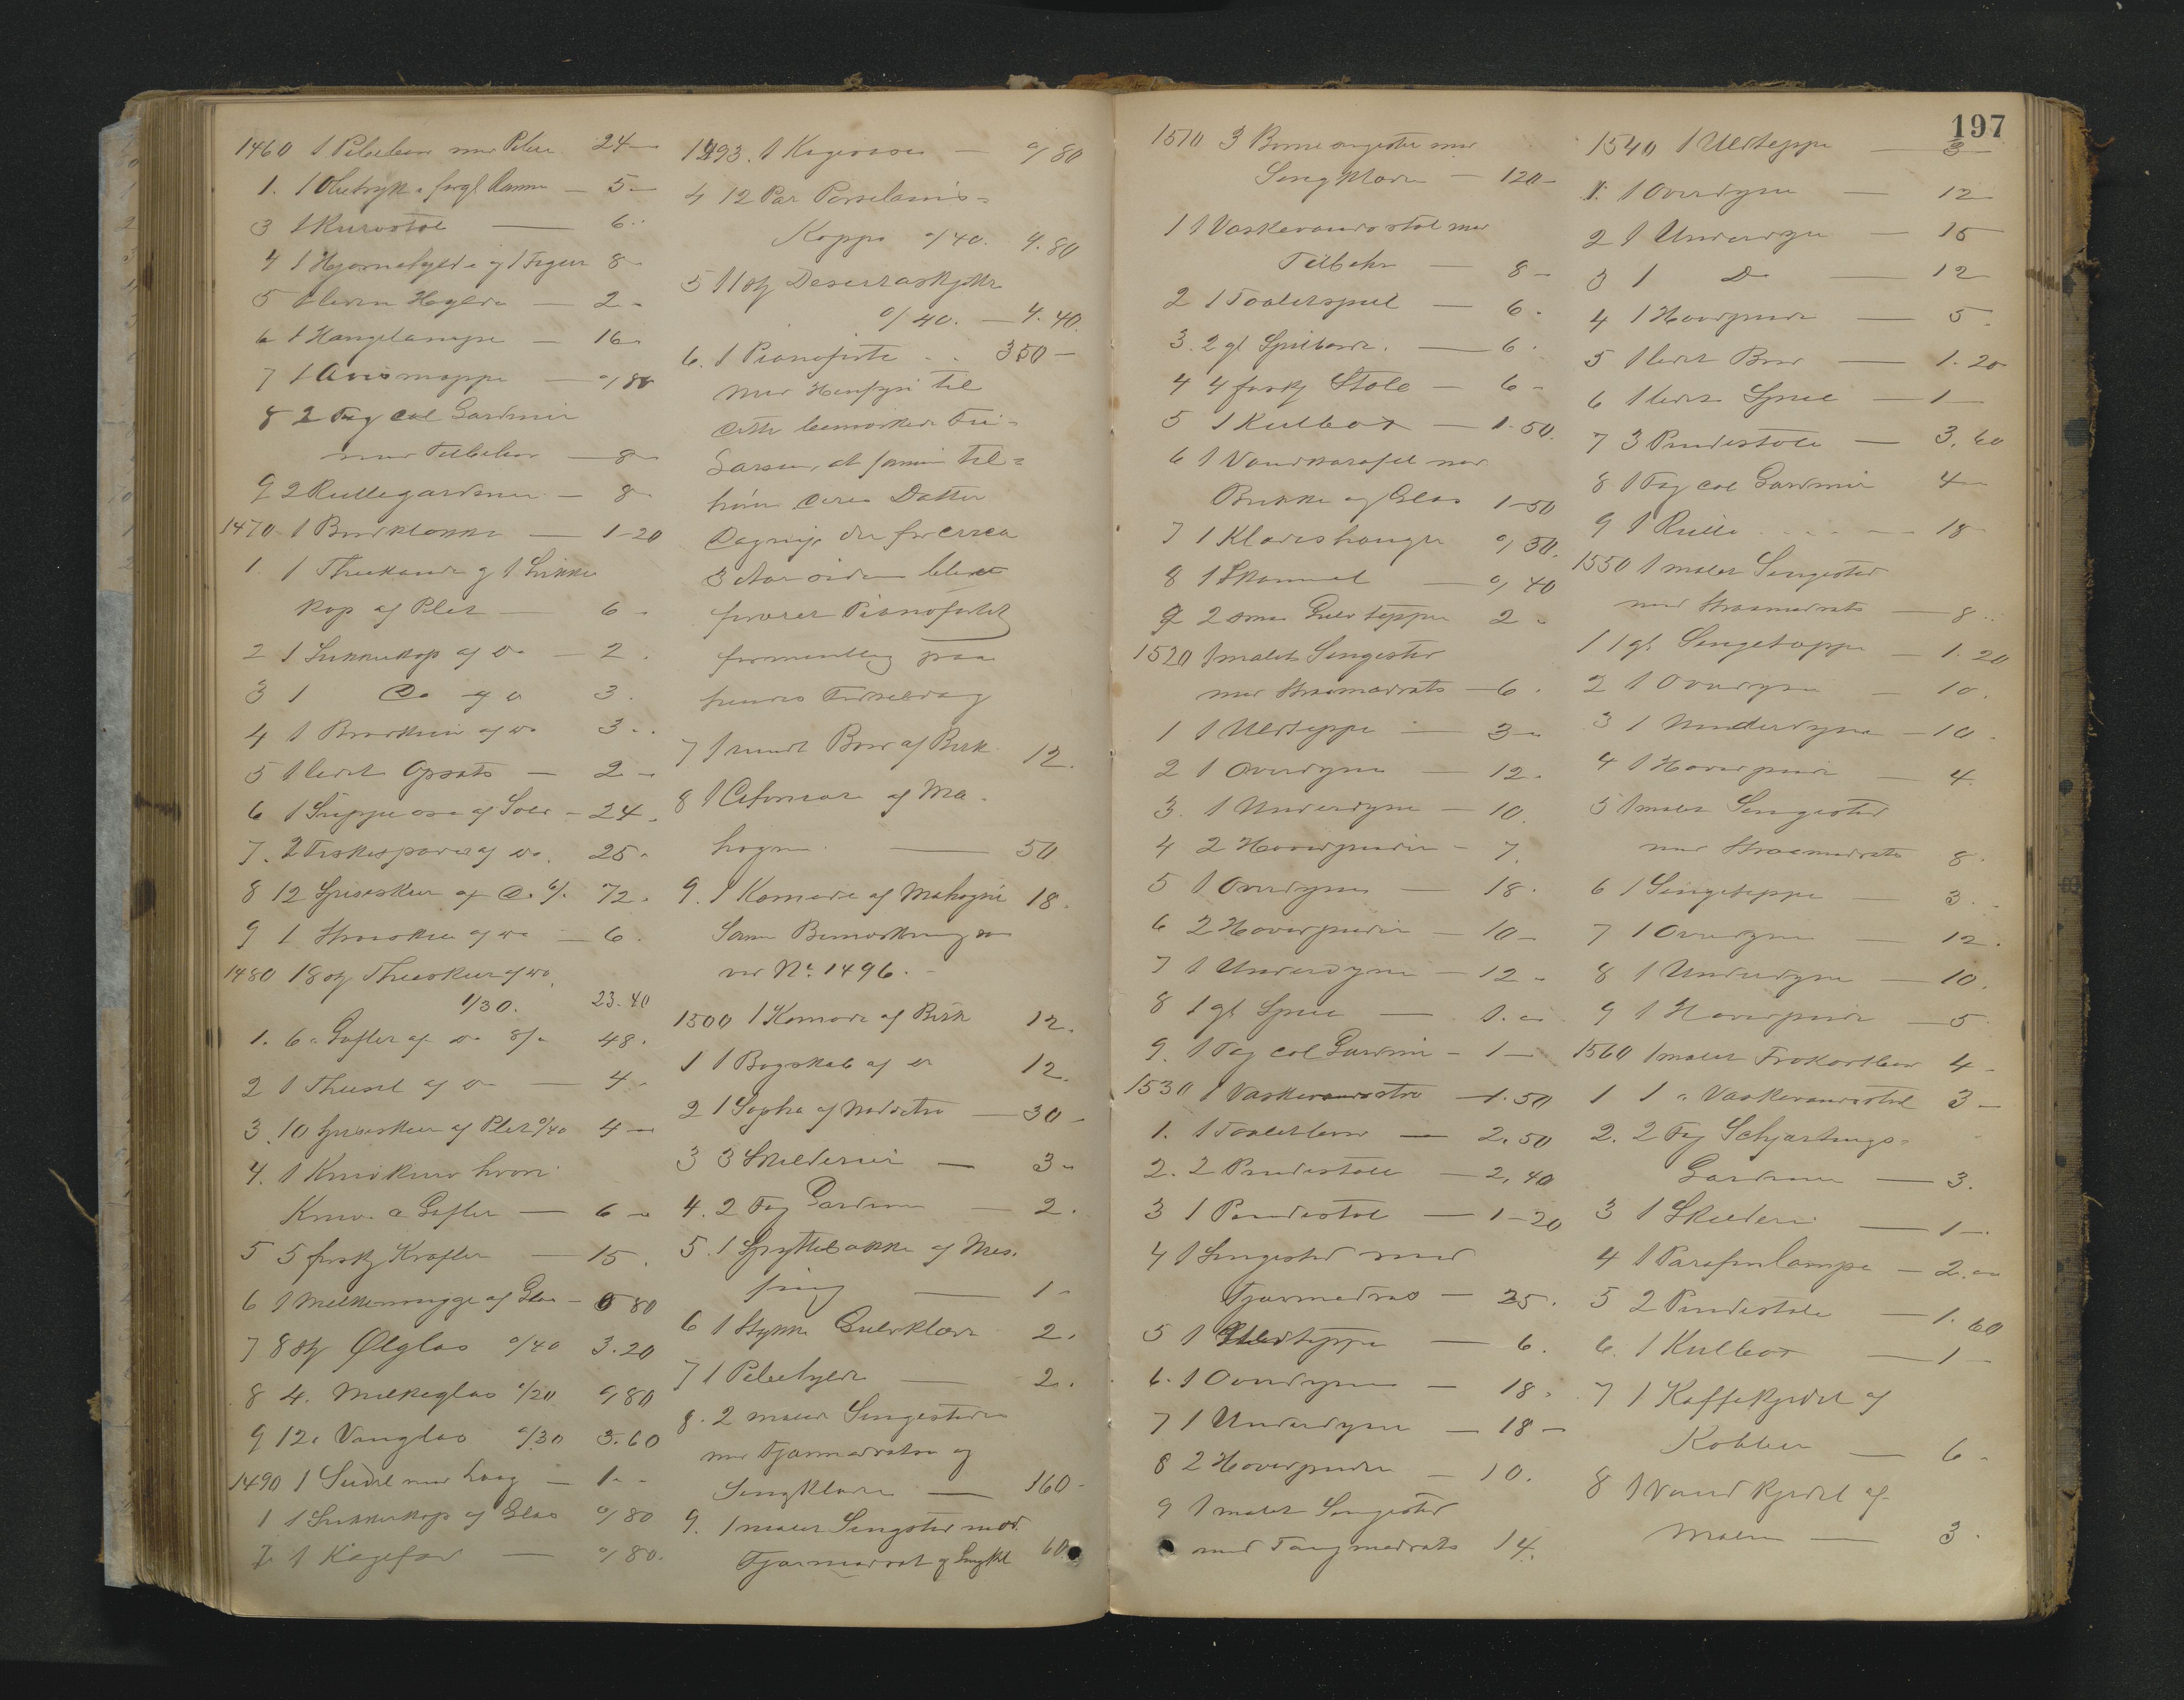 1460 1 Pibebor med Piber 24 —
1. 1 Olietryk i forgl Ramme — 5 —
3 1 Kurvstol — 6 "
4 1 Hjørnehylde og 1 Figur 8 "
5 1 liden Hylde — 2 "
6 1 Hængelampe — 16 "
7 1 Avismappe — "/80
8 2 Fag col Gardiner
med Tilbehør — 8 "
9 2 Rullegardiner — 8 "
1470 1 Bordklokke — 1-20
1. 1 Theekande og 1 Sukker
kop af Plet — 6 -
2 1 Sukkerkop af Do — 2 .
3 1 Do af do 3 .
4 1 Brødkurv af do 3 ..
5 1 lidet Opsats — 2 -
6 1 Suppeøse af Sølv - 24 .
7. 2 Fiskespader af do. 25 "
8 12 Spiseskeer af Do. 6/. 72 .
9 1 Strøske af do — 6 .
1480 18 stk Theeskeer af do,
1/30. 23.40
1. 6 " Gafler af do 8/" 48 .
2 1 Theesil af do — 4 -
3 10 Spiseskeer af Plet "/40 4 —
4. 1 Knivkurv hvori
Knive & Gafler — 6 -
5 5 forskj Krafler — 15 .
6 1 Melkemugge af Glas - 0 80
7 8 stk Ølglas "/40 3.20
8 4. Melkeglas "/20 "/80
9 12 " Vinglas "/30 3.60
1490 1 Seidel med Laag — 1 - -
1 1 Sukkerkop af Glas "/80
2 1 Kagefad — "/80.
1493. 1 Kagevase — "/80
4 12 Par Porselains=
Kopper "/40. 4.80
5 11 stk Desertasjetter
"/40. — 4.40.
6. 1 Pianoforte . . 350 —
Med Hensyn til
dette bemærkede Fru
Larsen, at samme til=
hører deres Datter
Dagny, der for circa
3 Aar siden blev
foræret Pianofortet
formentlig paa
hendes Fødselsdag
7 1 rundt Bord af Birk. 12.
8 1 Chifoniere af Ma.
hogni — 50
9. 1 Komode af Mahogni 18.
Samme Bemærkning som
ved No. 1496. -
1500 1 Komode af Birk 12.
1 1 Bogskab af do 12.
2 1 Sopha af Nødetræ — 30 -
3 3 Skilderier — 3 -
4. 2 Fag Gardiner — 2 .
5. 1 Spyttebakke af Mes.
sing — 1 -
6 1 Stykke Gulvklæde 2.
7 1 Pibehylde — 2 .
8. 2 malede Sengesteder
med Fjærmadratser og
Sengklæder — 160 -
9. 1 malet Sengsted med
Fjærmadrat og Sengkl 60
197
1510 3 Børnesengesteder med
Sengklæder — 120 -
1 1 Vaskevandsstol med
Tilbehør — 8 -
2 1 Toaletspeil — 6 .
3. 2 gl Spilleborde. — 6 .
4 4 forskj Stole — 6 -
5 1 Kulbox — 1-50.
6 1 Vandkaraffel med
Brikke og Glas 1-50
7 1 Klædeshænger "/50.
8 1 Skammel — "/40
9 2 smaa Gulvtepper 2 "
1520 1 malet Sengested
med Straamadrats — 6 .
1 1 Uldteppe — 3 -
2 1 Overdyne — 12 .
3. 1 Underdyne — 10.
4 2 Hovedpuder - 7.
5 1 Overdyne — 18 .
6 2 Hovedpuder — 10 -
7 1 Underdyne — 12 -
8 1 gl Speil — 1. "
9. 1 Fag col Gardiner - 1 —
1530 1 Vaskevandsstol — 1.50
1. 1 Toiletbord — 2.50
2. 2 Pindestole — 2,40
3 1 Pindestol — 1-20
4 1 Sengested med
Fjærmadras — 25 .
5 1 Uldteppe — 6 .
6. 1 Overdyne — 18 .
7 1 Underdyne — 18 -
8 2 Hovedpuder — 10 .
9 1 malet Sengested
med Tangmadrats 14.
1540 1 Uldteppe — 3 —
1. 1 Overdyne — 12
2 1 Underdyne — 15
3 1 Do — 12
4 1 Hovedpude — 5 .
5 1 lidet Bord — 1.20
6 1 lidet Speil — 1 —
7 3 Pindestole — 3.60
8 1 Fag col Gardiner 4 —
9 1 Rulle . . — 18 -
1550 1 malet Sengested
med Straamadrats — 8 ..
1 1 gl Sengeteppe — 1.20
2 1 Overdyne — 10 .
3 1 Underdyne — 10 .
4 1 Hovedpude — 4.
5 1 malet Sengested
med Straamadrats 8 .
6 1 Sengeteppe — 3 .
7 1 Overdyne — 12 .
8 1 Underdyne — 10 .
9 1 Hovedpude — 5
1560 1 malet Frokostbord 4 -
1 1 " Vaskevandsstol 3 —
2. 2 Fag Schjærtings=
Gardiner — 3.
3 1 Skilderi — 1 —.
4 1 Parafinlampe — 2."
5 2 Pindestole — 1.60
6. 1 Kulbox — 1 —
7 1 Kaffekjedel af
Kobber — 6 -
8 1 Vandkjedel af
Malm — 3 .